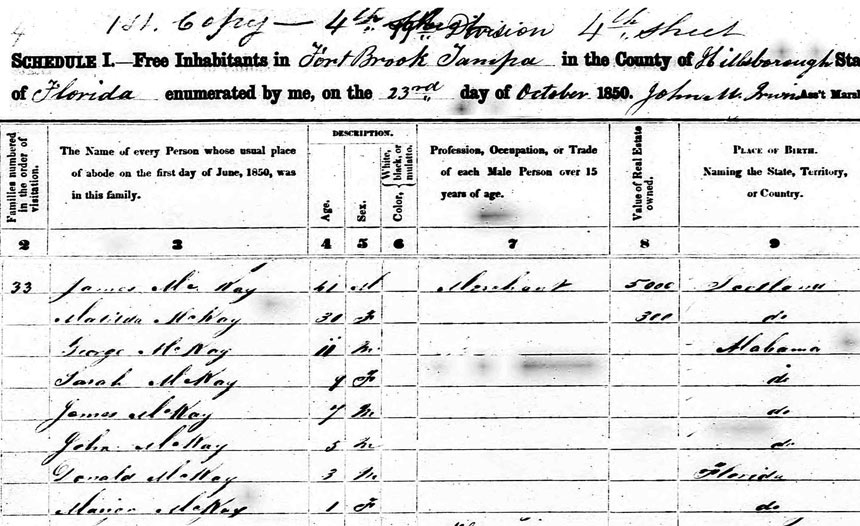 4 1st. Copy — 4th Division 4th sheet
SCHEDULE I.—Free Inhabitants in Fort Brook Tampa in the County of Hillsborough Sta
of Florida enumerated by me, on the 23rd day of October 1850. John M. Irwin Ass't Marsh
Families numbered in the order of visitation.
The Name of every Person whose usual place
of abode on the first day of June, 1850, was
in this family.
DESCRIPTION.
Age.
Sex.
Color, { White, black, or mulatto.
Profession, Occupation, or Trade
of each Male Person over 15
years of age.
Value of Real Estate owned.
PLACE OF BIRTH.
Naming the State, Territory,
or Country.
2 3 4 5 6 7 8 9
33 James McKay 41 M Merchant 5000 Scotland
Matilda McKay 30 F 300 do
George McKay 11 M Alabama
Sarah McKay 9 F do
James McKay 7 M do
John McKay 5 M do
Donald McKay 3 M Florida
Marion McKay 1 F do